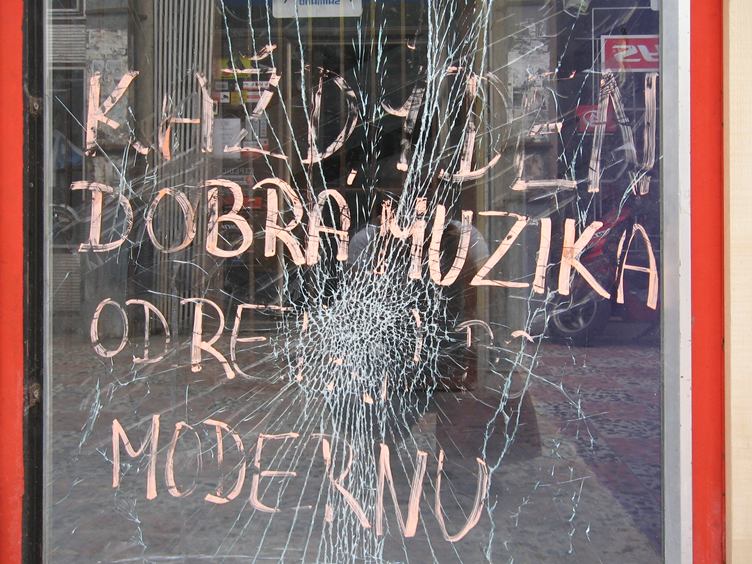 KAŽDY DEN
DOBRÁ MUZIKA
OD
MODERNU